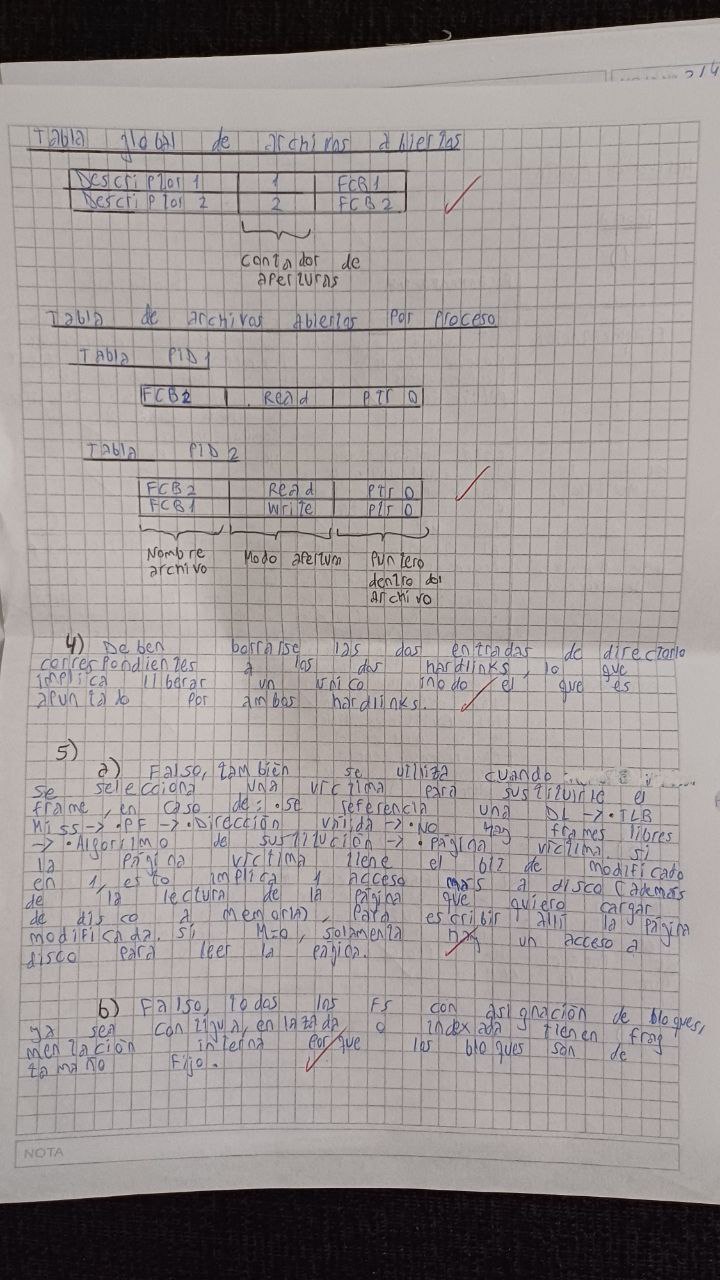 214
Tabla global de archivos abiertos
Descriptor 1 1 FCB1
Descriptor 2 2 FCB2
contador de
aperturas
Tabla de archivos abiertos por proceso
Tabla PID 1
FCB2 Read Ptr 0
Tabla PID 2
FCB2 Read Ptr 0
FCB1 Write Ptr 0
Nombre archivo Modo apertura Puntero dentro del archivo
4) Deben borrarse las dos entradas de directorio
correspondientes a los dos hardlinks, lo que
implica liberar un único inodo el que es
apuntado por ambos hardlinks.
5)
a) Falso, también se utiliza cuando
se selecciona una víctima para sustituirle el
frame, en caso de: • se referencia una DL → • TLB
Miss → • PF → • Dirección válida → • No hay frames libres
→ • Algoritmo de sustitución → • Página víctima. si
la página víctima tiene el bit de modificado
en 1, esto implica 1 acceso más a disco (además
de la lectura de la página que quiero cargar
de disco a memoria), para escribir allí la página
modificada. si M=0, solamente hay un acceso a
disco para leer la página.
b) Falso, todos los FS con asignación de bloques,
ya sea contigua, enlazada, o indexada tienen frag
mentación interna porque los bloques son de
tamaño fijo.
NOTA